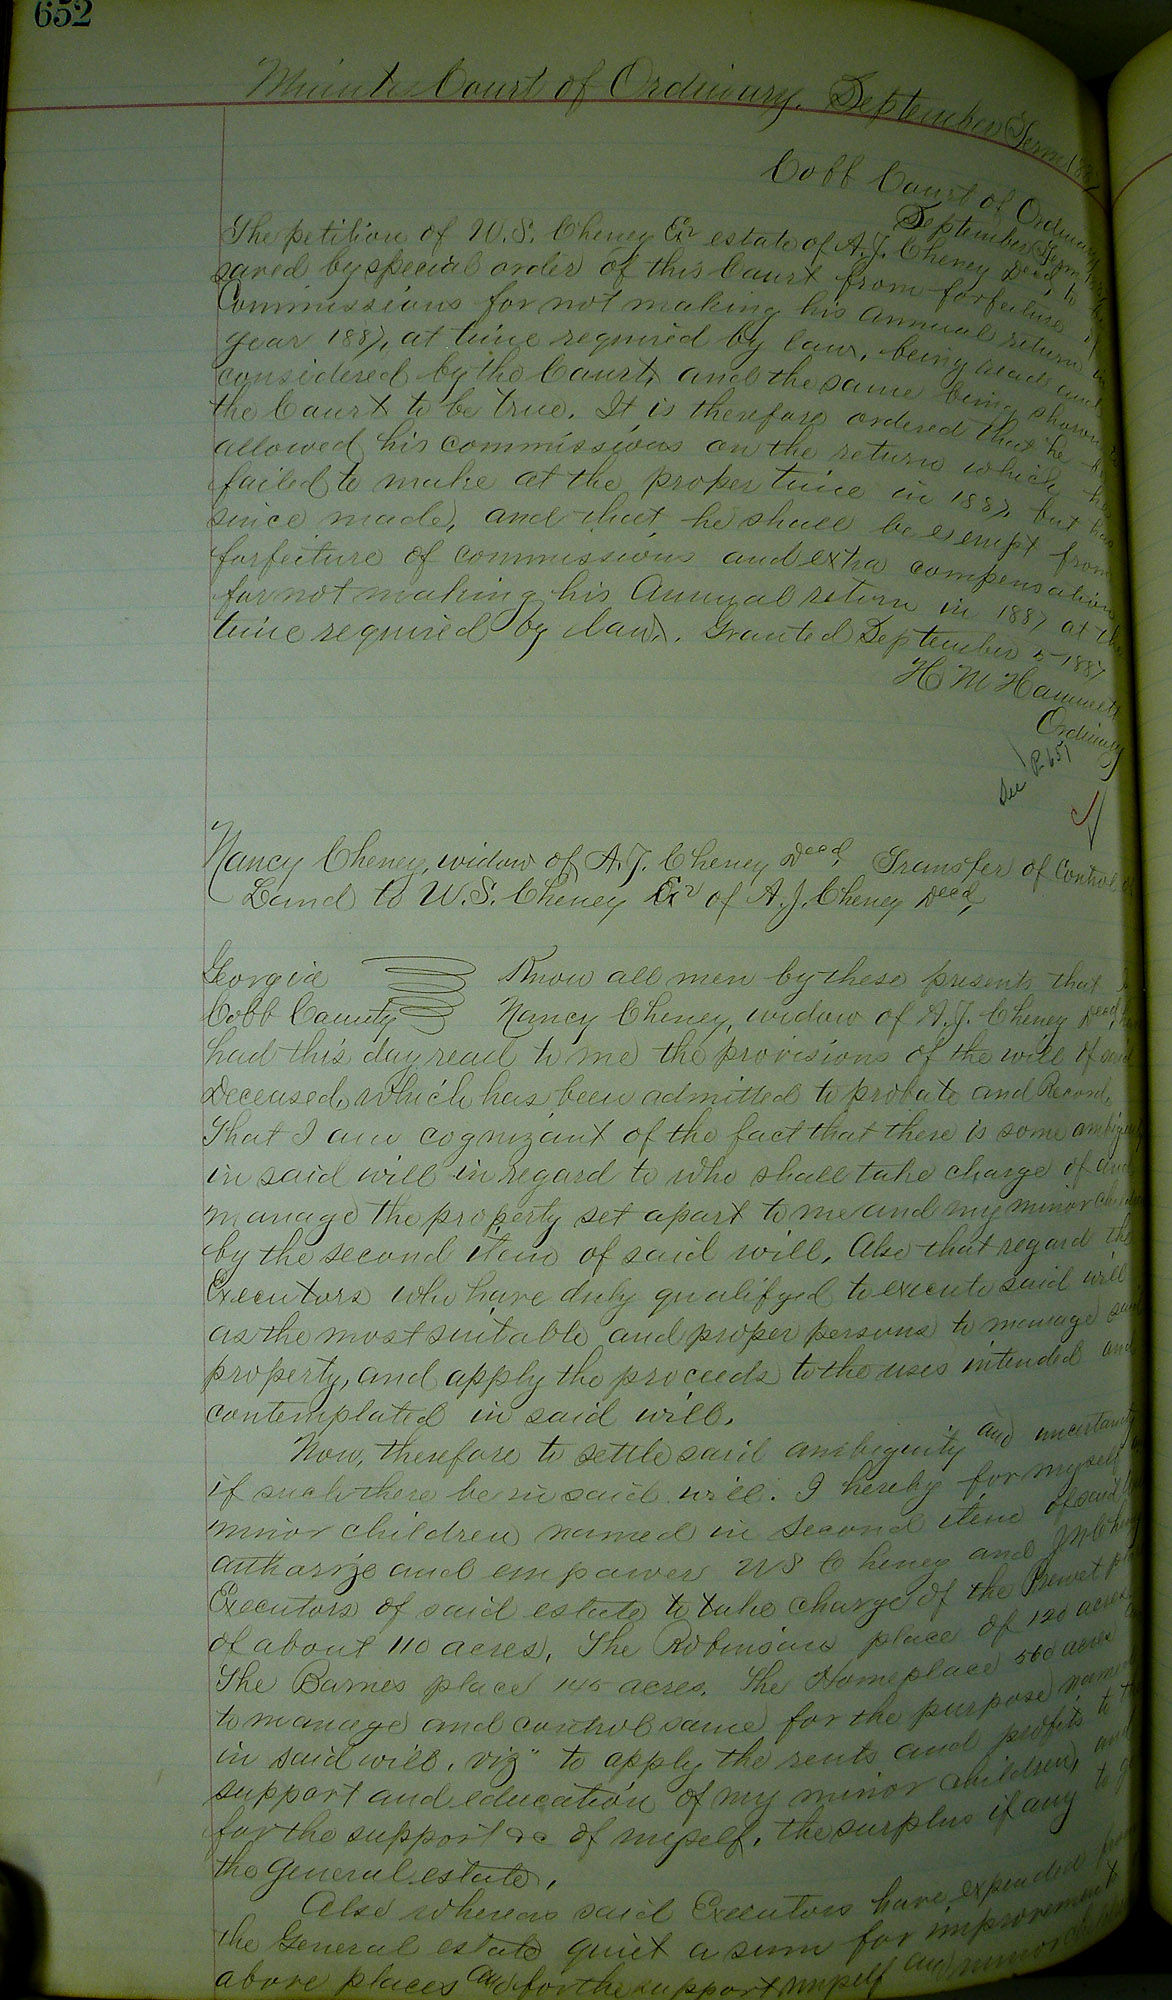 652
Minute Court of Ordinary, September Term 1887
Cobb Court of Ordinary
September Term
The petition of W.S. Cheney Exr estate of A.J. Cheney Decd, to
saved by special order of this Court from forfeiture of
Commissions for not making his annual return in
year 1887, at time required by law, being read and
considered by the Court, and the same being shown to
the Court to be true. It is therefore ordered that he be
allowed his commissions on the return which he
failed to make at the proper time in 1887, but has
since made, and that he shall be exempt from
forfeiture of commissions and extra compensation
for not making his Annual return in 1887 at the
time required by law. Granted September 5 1887
H M Hammett
Ordinary
See P. 657
Nancy Cheney, widow of A.J. Cheney Decd, Transfer of Control of
Land to W.S. Cheney Exr of A.J. Cheney Decd,
Georgia Know all men by these presents that I
Cobb County Nancy Cheney, widow of A.J. Cheney Decd,
had this day read to me the provisions of the will of said
Deceased, which has been admitted to probate and Record,
That I am cognizant of the fact that there is some ambiguity
in said will in regard to who shall take charge of and
manage the property set apart to me and my minor children
by the second item of said will, Also that regard the
Executors who have duly qualifyed to execute said will
as the most suitable and proper persons to manage said
property, and apply the proceeds to the uses intended and
contemplated in said will.
Now, therefore to settle said ambiguity and uncertainty
if such there be in said will. I hereby for myself
minor children named in second item of said
authorize and empower W S Cheney and
Executors of said estate to take charge of the Prewet place
of about 110 acres, The Robinson place of 120 acres
The Barnes place 145 acres. The Homeplace 560 acres
to manage and control same for the purpose named
in said will, viz" to apply the rents and profits to the
support and education of my minor children, and
for the support &c of myself, the surplus if any to go
the General estate,
Also whereas said Executors have expended from
the General estate quiet a sum for improvement
above places and for the support myself and minor children